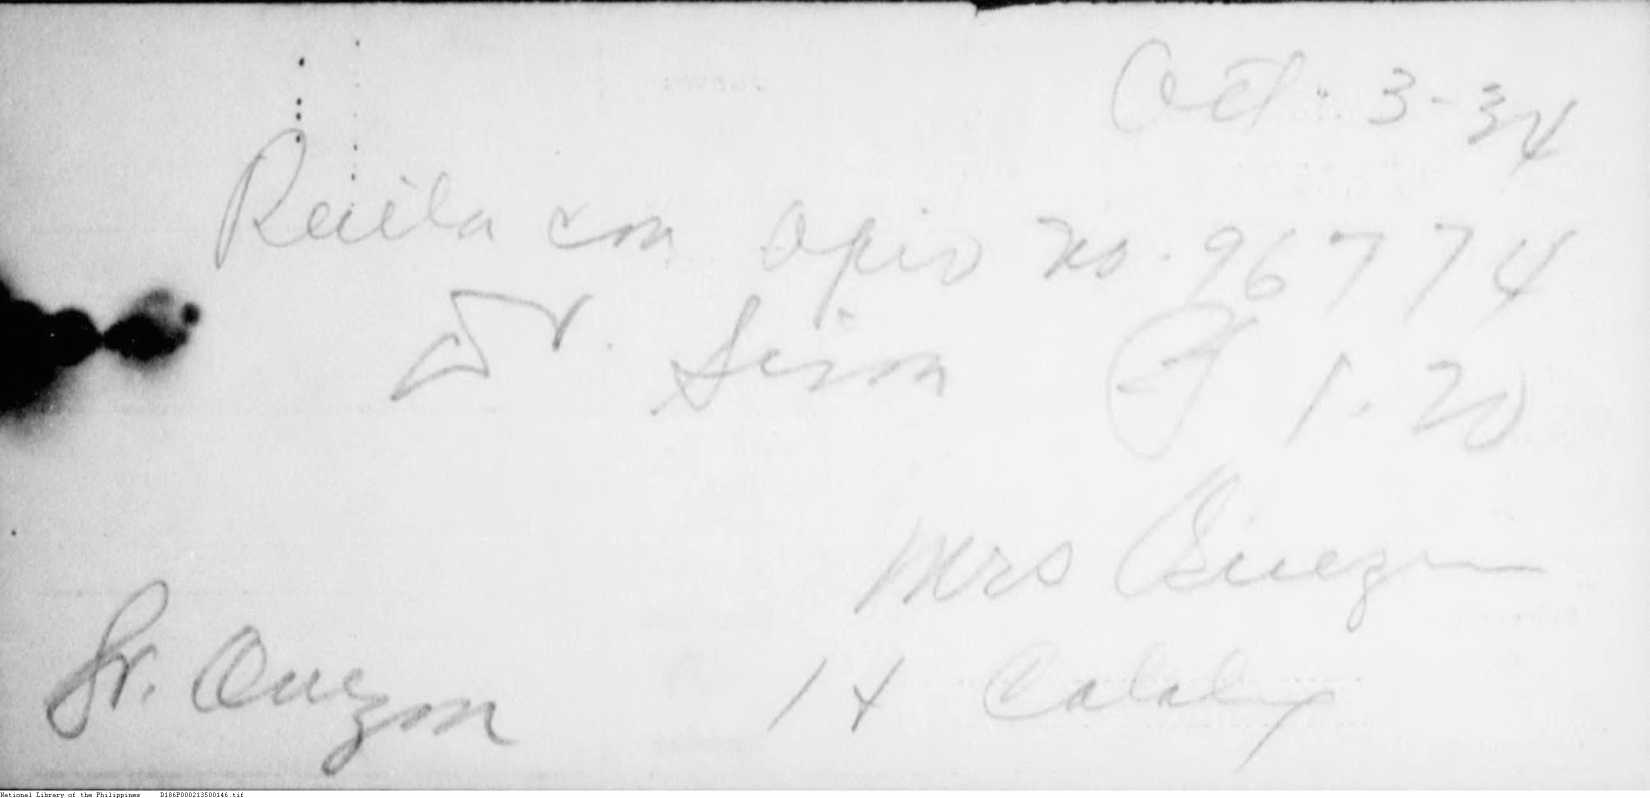 Oct. 3-34
Receta con opio No. 96774
Dr. Sison ₱ 1.20
Mrs Quezon
14 Calaby
Sr. Quezon
National Library of the Philippines D186P000213500146.tif